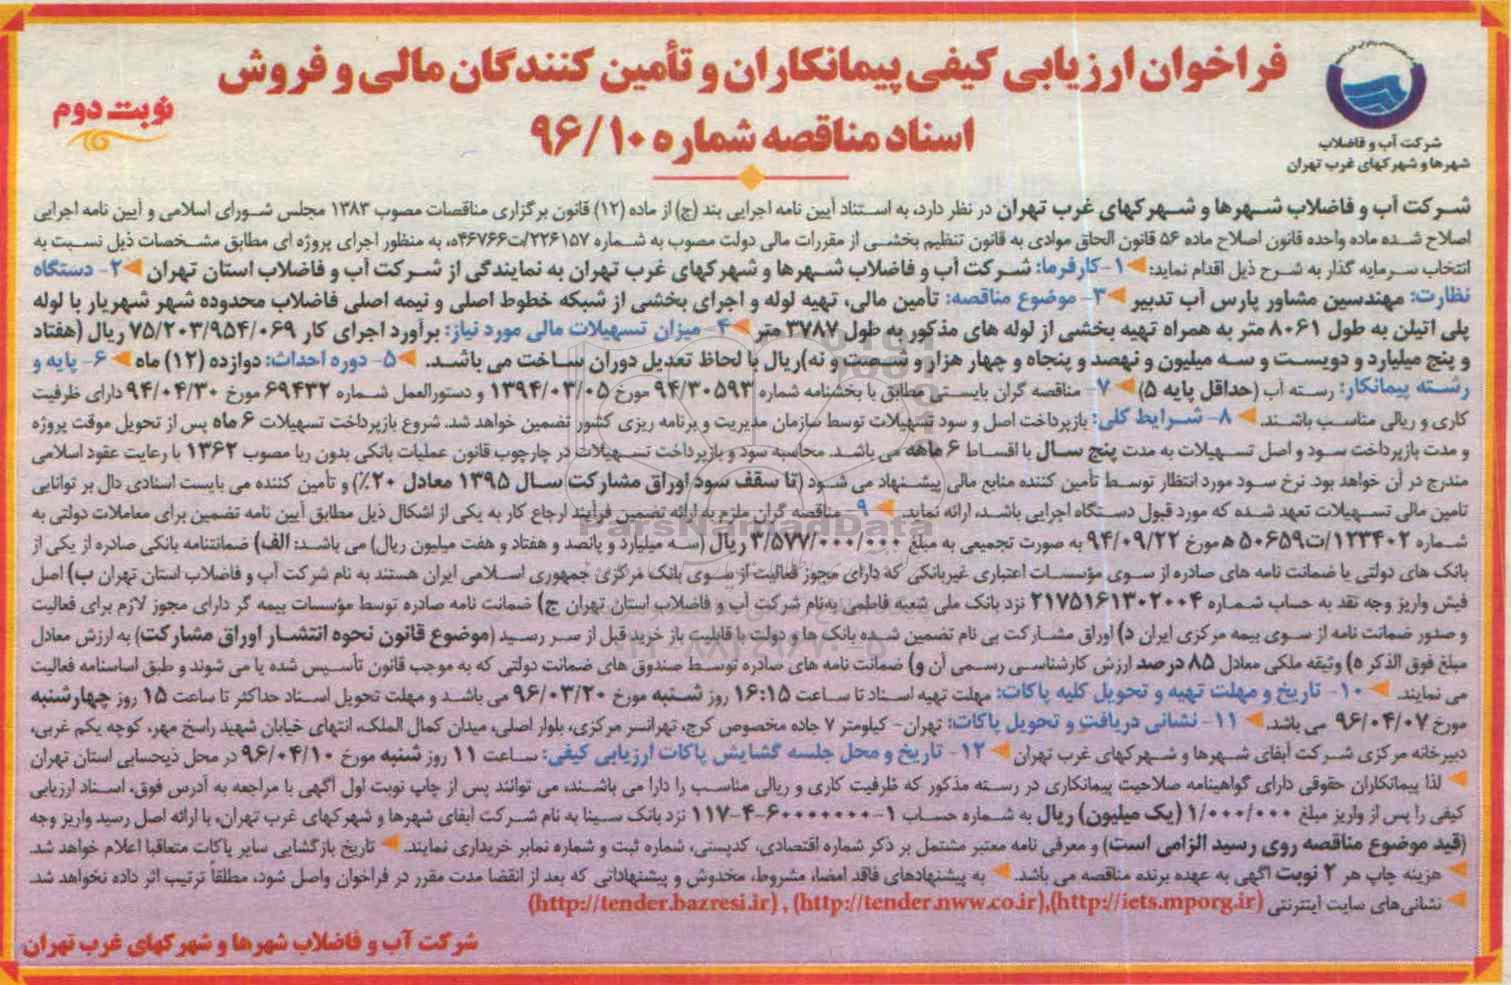 فراخوان ارزیابی کیفی پیمانکاران و تأمین کنندگان مالی و فروش
اسناد مناقصه شماره ۹۶/۱۰
نوبت دوم
شرکت آب و فاضلاب
شهرها و شهرکهای غرب تهران
شرکت آب و فاضلاب شهرها و شهرکهای غرب تهران در نظر دارد، به استناد آیین نامه اجرایی بند (ج) از ماده (۱۲) قانون برگزاری مناقصات مصوب ۱۳۸۳ مجلس شورای اسلامی و آیین نامه اجرایی
اصلاح شده ماده واحده قانون اصلاح ماده ۵۶ قانون الحاق موادی به قانون تنظیم بخشی از مقررات مالی دولت مصوب به شماره ۲۲۶۱۵۷/ت۴۶۷۶۶ه، به منظور اجرای پروژه ای مطابق مشخصات ذیل نسبت به
انتخاب سرمایه گذار به شرح ذیل اقدام نماید: ۱-کارفرما: شرکت آب و فاضلاب شهرها و شهرکهای غرب تهران به نمایندگی از شرکت آب و فاضلاب استان تهران ۲- دستگاه
نظارت: مهندسین مشاور پارس آب تدبیر ۳- موضوع مناقصه: تأمین مالی، تهیه لوله و اجرای بخشی از شبکه خطوط اصلی و نیمه اصلی فاضلاب محدوده شهر شهریار با لوله
پلی اتیلن به طول ۸۰۶۱ متر به همراه تهیه بخشی از لوله های مذکور به طول ۳۷۸۷ متر ۴- میزان تسهیلات مالی مورد نیاز: برآورد اجرای کار ۷۵/۲۰۳/۹۵۴/۰۶۹ ریال (هفتاد
و پنج میلیارد و دویست و سه میلیون و نهصد و پنجاه و چهار هزار و شصت و نه)ریال با لحاظ تعدیل دوران ساخت می باشد. ۵- دوره احداث: دوازده (۱۲) ماه ۶- پایه و
رشته پیمانکار: رسته آب (حداقل پایه ۵) ۷- مناقصه گران بایستی مطابق با بخشنامه شماره ۹۴/۳۰۵۹۳ مورخ ۱۳۹۴/۰۳/۰۵ و دستورالعمل شماره ۶۹۴۳۲ مورخ ۹۴/۰۴/۳۰ دارای ظرفیت
کاری و ریالی مناسب باشند. ۸- شرایط کلی: بازپرداخت اصل و سود تسهیلات توسط سازمان مدیریت و برنامه ریزی کشور تضمین خواهد شد. شروع بازپرداخت تسهیلات ۶ ماه پس از تحویل موقت پروژه
و مدت بازپرداخت سود و اصل تسهیلات به مدت پنج سال با اقساط ۶ ماهه می باشد. محاسبه سود و بازپرداخت تسهیلات در چارچوب قانون عملیات بانکی بدون ربا مصوب ۱۳۶۲ با رعایت عقود اسلامی
مندرج در آن خواهد بود. نرخ سود مورد انتظار توسط تأمین کننده منابع مالی پیشنهاد می شود (تا سقف سود اوراق مشارکت سال ۱۳۹۵ معادل ۲۰٪) و تأمین کننده می بایست اسنادی دال بر توانایی
تامین مالی تسهیلات تعهد شده که مورد قبول دستگاه اجرایی باشد، ارائه نماید. ۹- مناقصه گران ملزم به ارائه تضمین فرآیند ارجاع کار به یکی از اشکال ذیل مطابق آیین نامه تضمین برای معاملات دولتی به
شماره ۱۲۳۴۰۲/ت۵۰۶۵۹ ه مورخ ۹۴/۰۹/۲۲ به صورت تجمیعی به مبلغ ۳/۵۷۷/۰۰۰/۰۰۰ ریال (سه میلیارد و پانصد و هفتاد و هفت میلیون ریال) می باشد: الف) ضمانتنامه بانکی صادره از یکی از
بانک های دولتی یا ضمانت نامه های صادره از سوی مؤسسات اعتباری غیربانکی که دارای مجوز فعالیت از سوی بانک مرکزی جمهوری اسلامی ایران هستند به نام شرکت آب و فاضلاب استان تهران ب) اصل
فیش واریز وجه نقد به حساب شماره ۲۱۷۵۱۶۱۳۰۲۰۰۴ نزد بانک ملی شعبه فاطمی به‌نام شرکت آب و فاضلاب استان تهران ج) ضمانت نامه صادره توسط مؤسسات بیمه گر دارای مجوز لازم برای فعالیت
و صدور ضمانت نامه از سوی بیمه مرکزی ایران د) اوراق مشارکت بی نام تضمین شده بانک ها و دولت با قابلیت باز خرید قبل از سر رسید (موضوع قانون نحوه انتشار اوراق مشارکت) به ارزش معادل
مبلغ فوق الذکر ه) وثیقه ملکی معادل ۸۵ درصد ارزش کارشناسی رسمی آن و) ضمانت نامه های صادره توسط صندوق های ضمانت دولتی که به موجب قانون تأسیس شده یا می شوند و طبق اساسنامه فعالیت
می نمایند. ۱۰- تاریخ و مهلت تهیه و تحویل کلیه پاکات: مهلت تهیه اسناد تا ساعت ۱۶:۱۵ روز شنبه مورخ ۹۶/۰۳/۲۰ می باشد و مهلت تحویل اسناد حداکثر تا ساعت ۱۵ روز چهارشنبه
مورخ ۹۶/۰۴/۰۷ می باشد. ۱۱- نشانی دریافت و تحویل پاکات: تهران- کیلومتر ۷ جاده مخصوص کرج، تهرانسر مرکزی، بلوار اصلی، میدان کمال الملک، انتهای خیابان شهید راسخ مهر، کوچه یکم غربی،
دبیرخانه مرکزی شرکت آبفای شهرها و شهرکهای غرب تهران ۱۲- تاریخ و محل جلسه گشایش پاکات ارزیابی کیفی: ساعت ۱۱ روز شنبه مورخ ۹۶/۰۴/۱۰ در محل ذیحسابی استان تهران
لذا پیمانکاران حقوقی دارای گواهینامه صلاحیت پیمانکاری در رسته مذکور که ظرفیت کاری و ریالی مناسب را دارا می باشند، می توانند پس از چاپ نوبت اول آگهی با مراجعه به آدرس فوق، اسناد ارزیابی
کیفی را پس از واریز مبلغ ۱/۰۰۰/۰۰۰ (یک میلیون) ریال به شماره حساب ۱-۶۰۰۰۰۰۰۰-۴-۱۱۷ نزد بانک سینا به نام شرکت آبفای شهرها و شهرکهای غرب تهران، با ارائه اصل رسید واریز وجه
(قید موضوع مناقصه روی رسید الزامی است) و معرفی نامه معتبر مشتمل بر ذکر شماره اقتصادی، کدپستی، شماره ثبت و شماره نمابر خریداری نمایند. تاریخ بازگشایی سایر پاکات متعاقبا اعلام خواهد شد.
هزینه چاپ هر ۲ نوبت آگهی به عهده برنده مناقصه می باشد. به پیشنهادهای فاقد امضا، مشروط، مخدوش و پیشنهاداتی که بعد از انقضا مدت مقرر در فراخوان واصل شود، مطلقاً ترتیب اثر داده نخواهد شد.
نشانی‌های سایت اینترنتی (http://iets.mporg.ir),(http://tender.nww.co.ir) , (http://tender.bazresi.ir)
شرکت آب و فاضلاب شهرها و شهرکهای غرب تهران
ParsNamadData